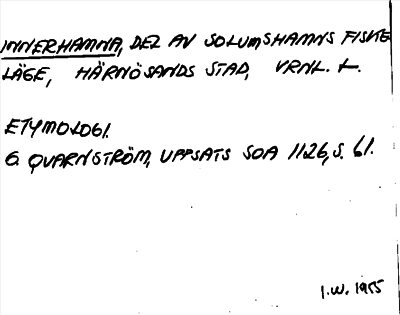 INNERHAMNA, DEL AV SOLUMSHAMNS FISKE
LÄGE, HÄRNÖSANDS STAD, VRNL. L.
ETYMOLOGI.
G. QVARNSTRÖM, UPPSATS SOA 1126, S. 61.
I.W. 1955